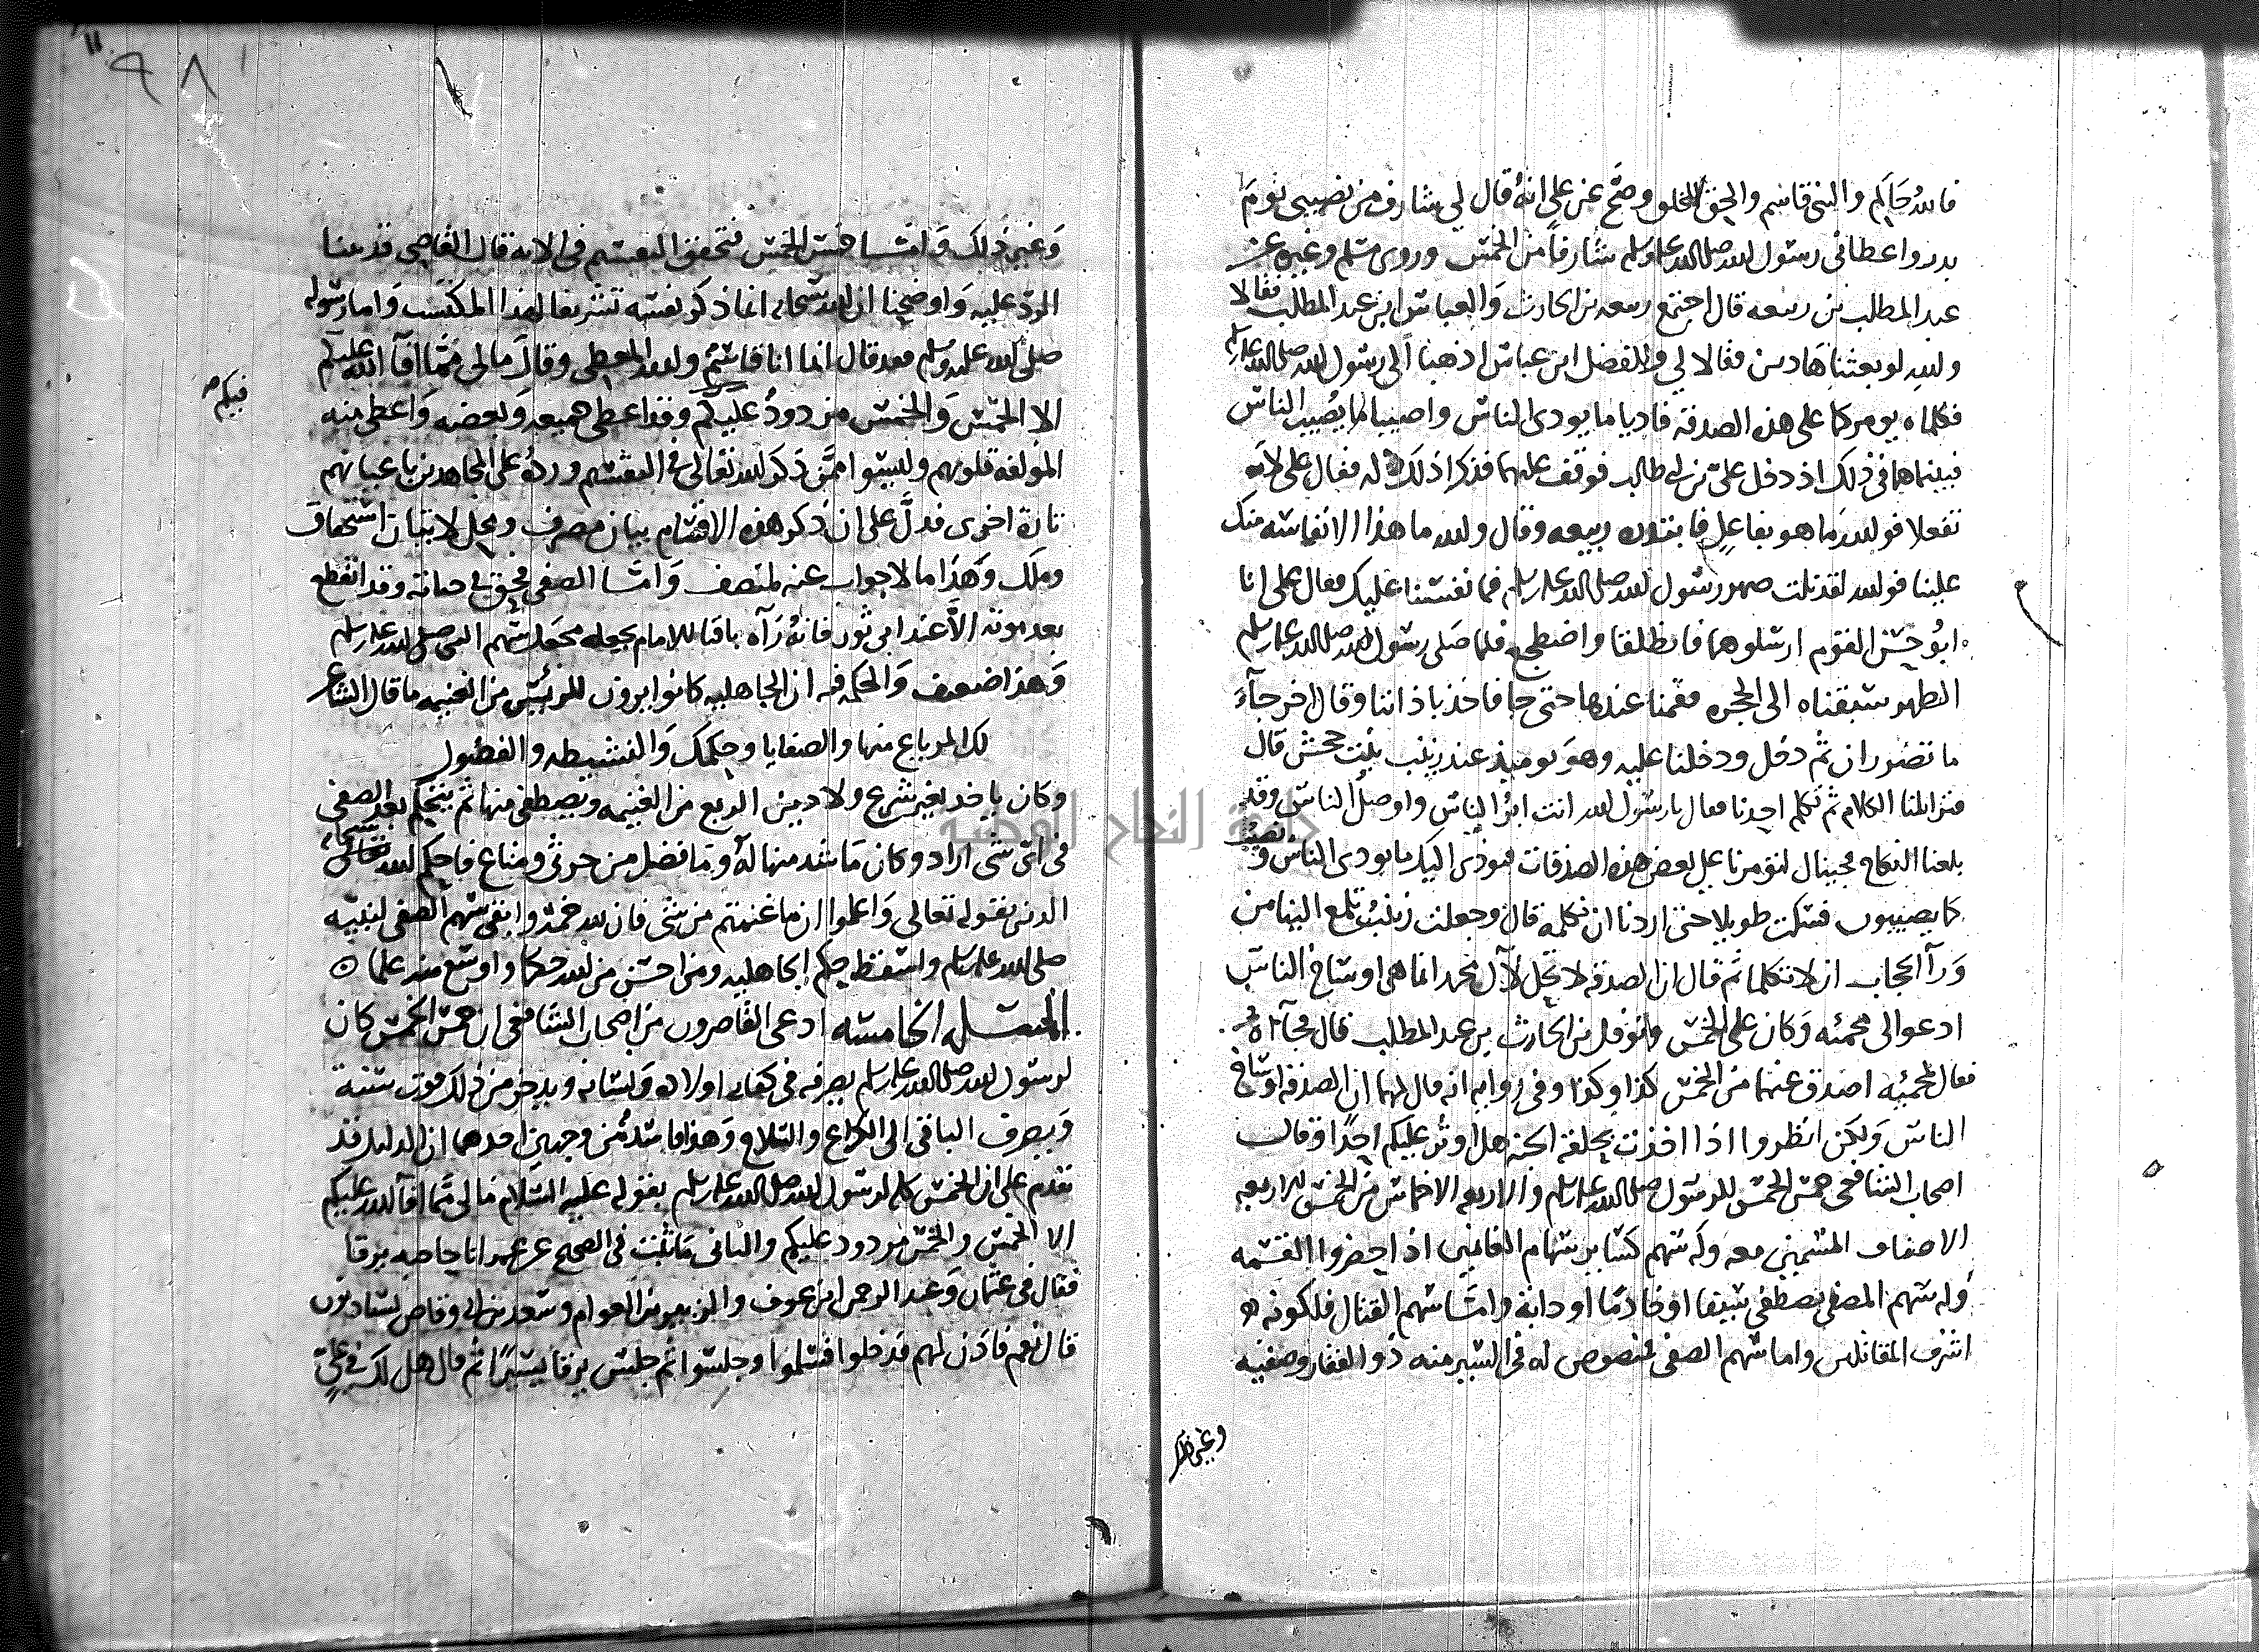 فالله حاكم والنبي قاسم والحق للخلق وصح عن علي انه قال لي شارف من نصيبي يوم
بدر واعطاني رسول الله صلى الله عليه وسلم شارفا من الخمس وروى مسلم وغيره عن
عبد المطلب بن ربيعه قال اجتمع ربيعه بن الحارث والعباس ابن عبد المطلب فقالا
والله لو بعثنا هاذين فقالا لي وللفضل ابن عباس اذهبا الى رسول الله صلى الله عليه وسلم
فكلماه يومركما على هذه الصدقه فاديا ما يودى الناس واصيبا ما يصيب الناس
فبينما هما في ذلك اذ دخل علي بن ابي طالب فوقف عليهما فذكرا ذلك له فقال علي لا
تفعلا فوالله ما هو بفاعل فابتدره ربيعه وقال والله ما هذا الا نفاسه منك
علينا فوالله لقد نلت صهر رسول الله صلى الله عليه وسلم فما نفسنا عليك فقال علي انا
ابو حسن القوم ارسلوهما فانطلقا واضطجع فلما صلى رسول الله صلى الله عليه وسلم
الظهر سبقناه الى الحجره فقمنا عندها حتى جا فاخذ باذاننا وقال اخرجا
ما تصرران ثم دخل ودخلنا عليه وهو يوميذ عند زينب بنت جحش قال
فتواكلنا الكلام ثم تكلم احدنا فقال يارسول الله انت ابر الناس واوصل الناس وقد
بلغنا النكاح فجينا لتومرنا على بعض هذه الصدقات فنودى اليك ما يودى الناس ونصيب
كما يصيبون فسكت طويلا حتى اردنا ان نكلمه قال وجعلت زينب تلمع الينا من
ورآ الحجاب ان لا تكلما ثم قال ان الصدقه لا تحل لآل محمد انما هي اوساخ الناس
ادعوا لي محميه وكان على الخمس ونوفل بن الحارث بن عبد المطلب قال فجآه
فقال لمحميه اصدق عنهما من الخمس كذا وكذا وفي روايه انه قال لهما ان الصدقه اوساخ
الناس ولكن انظروا اذا اخذت بحلقه الجنه هل اوثر عليكم احدا وقالت
اصحاب الشافعي خمس الخمس للرسول صلى الله عليه وسلم والاربعه الاخماس من الخمس للاربعه
الاصناف المسمين معه وله سهم كساير سهام الغانمين اذا حضروا القسمه
وله سهم الصفي يصطفي سيفا او خادما او دابة واما سهم القتال فلكونه
اشرف المقاتلين واما سهم الصفي فمنصوص له في السير منه ذو الفقار وصفيه
وغير ذلك
وغير ذلك واما خمس الخمس فتحقق التقسيم في الايه قال القاضي قد بينا
الرد عليه واوضحنا ان الله سبحانه انما ذكر نفسه تشريفا لهذا المكتسب واما رسوله
صلى الله عليه وسلم فقد قال انما انا قاسم والله المعطي وقال ما لي مما افآ الله عليكم
الا الخمس والخمس مردود عليكم وقد اعطى جميعه وبعضه واعطى منه
فيكم
المولفه قلوبهم وليسوا ممن ذكر الله تعالى في التقسيم ورده على المجاهدين باعيانهم
تارة اخرى فدل على ان ذكر هذه الاقسام بيان مصرف ومحل لا بيان استحقاق
وملك وهذا ما لا جواب عنه لمنصف واما الصفي فحق في حياته وقد انقطع
بعد موته الا عند ابي ثور فانه رآه باقيا للامام يجعله مجعل سهم النبي صلى الله عليه وسلم
وهذا ضعيف والحكمه فيه ان الجاهليه كانوا يرون للرئيس من الغنيمه ما قال الشاعر
لك المرباع منها والصفايا وحكمك والنشيطه والفضول
وكان ياخذ بغير شرع ولا دين الربع من الغنيمه ويصطفي منها ثم يتحكم بعد الصفي
في اي شي اراد وكان ما شذ منها له وما فضل من حرثي ومتاع فاحكم الله سبحانه
الدين بقوله تعالى واعلموا ان ما غنمتم من شي فان لله خمسه وابقى سهم الصفي لنبيه
صلى الله عليه وسلم واسقط حكم الجاهليه ومن احسن من الله حكما واوسع منه علما
المسئله الخامسه ادعى القاصرون من اصحاب الشافعي ان خمس الخمس كان
لرسول الله صلى الله عليه وسلم يصرفه في كفايه اولاده ونسائه ويدخر من ذلك قوت سنة
ويصرف الباقي الى الكراع والسلاح وهذا فاسد من وجهين احدهما ان الدليل قد
تقدم على ان الخمس كله لرسول الله صلى الله عليه وسلم بقوله عليه السلام ما لي مما افآ الله عليكم
الا الخمس والخمس مردود عليكم والثاني ما ثبت في الصحيح عن عمر اتاه حاجبه يرفا
فقال في عثمان وعبد الرحمن ابن عوف والزبير بن العوام وسعد بن ابي وقاص يستاذنون
قال نعم فاذن لهم فدخلوا فسلموا وجلسوا ثم جلس يرفا يسيرا ثم قال هل لك في علي